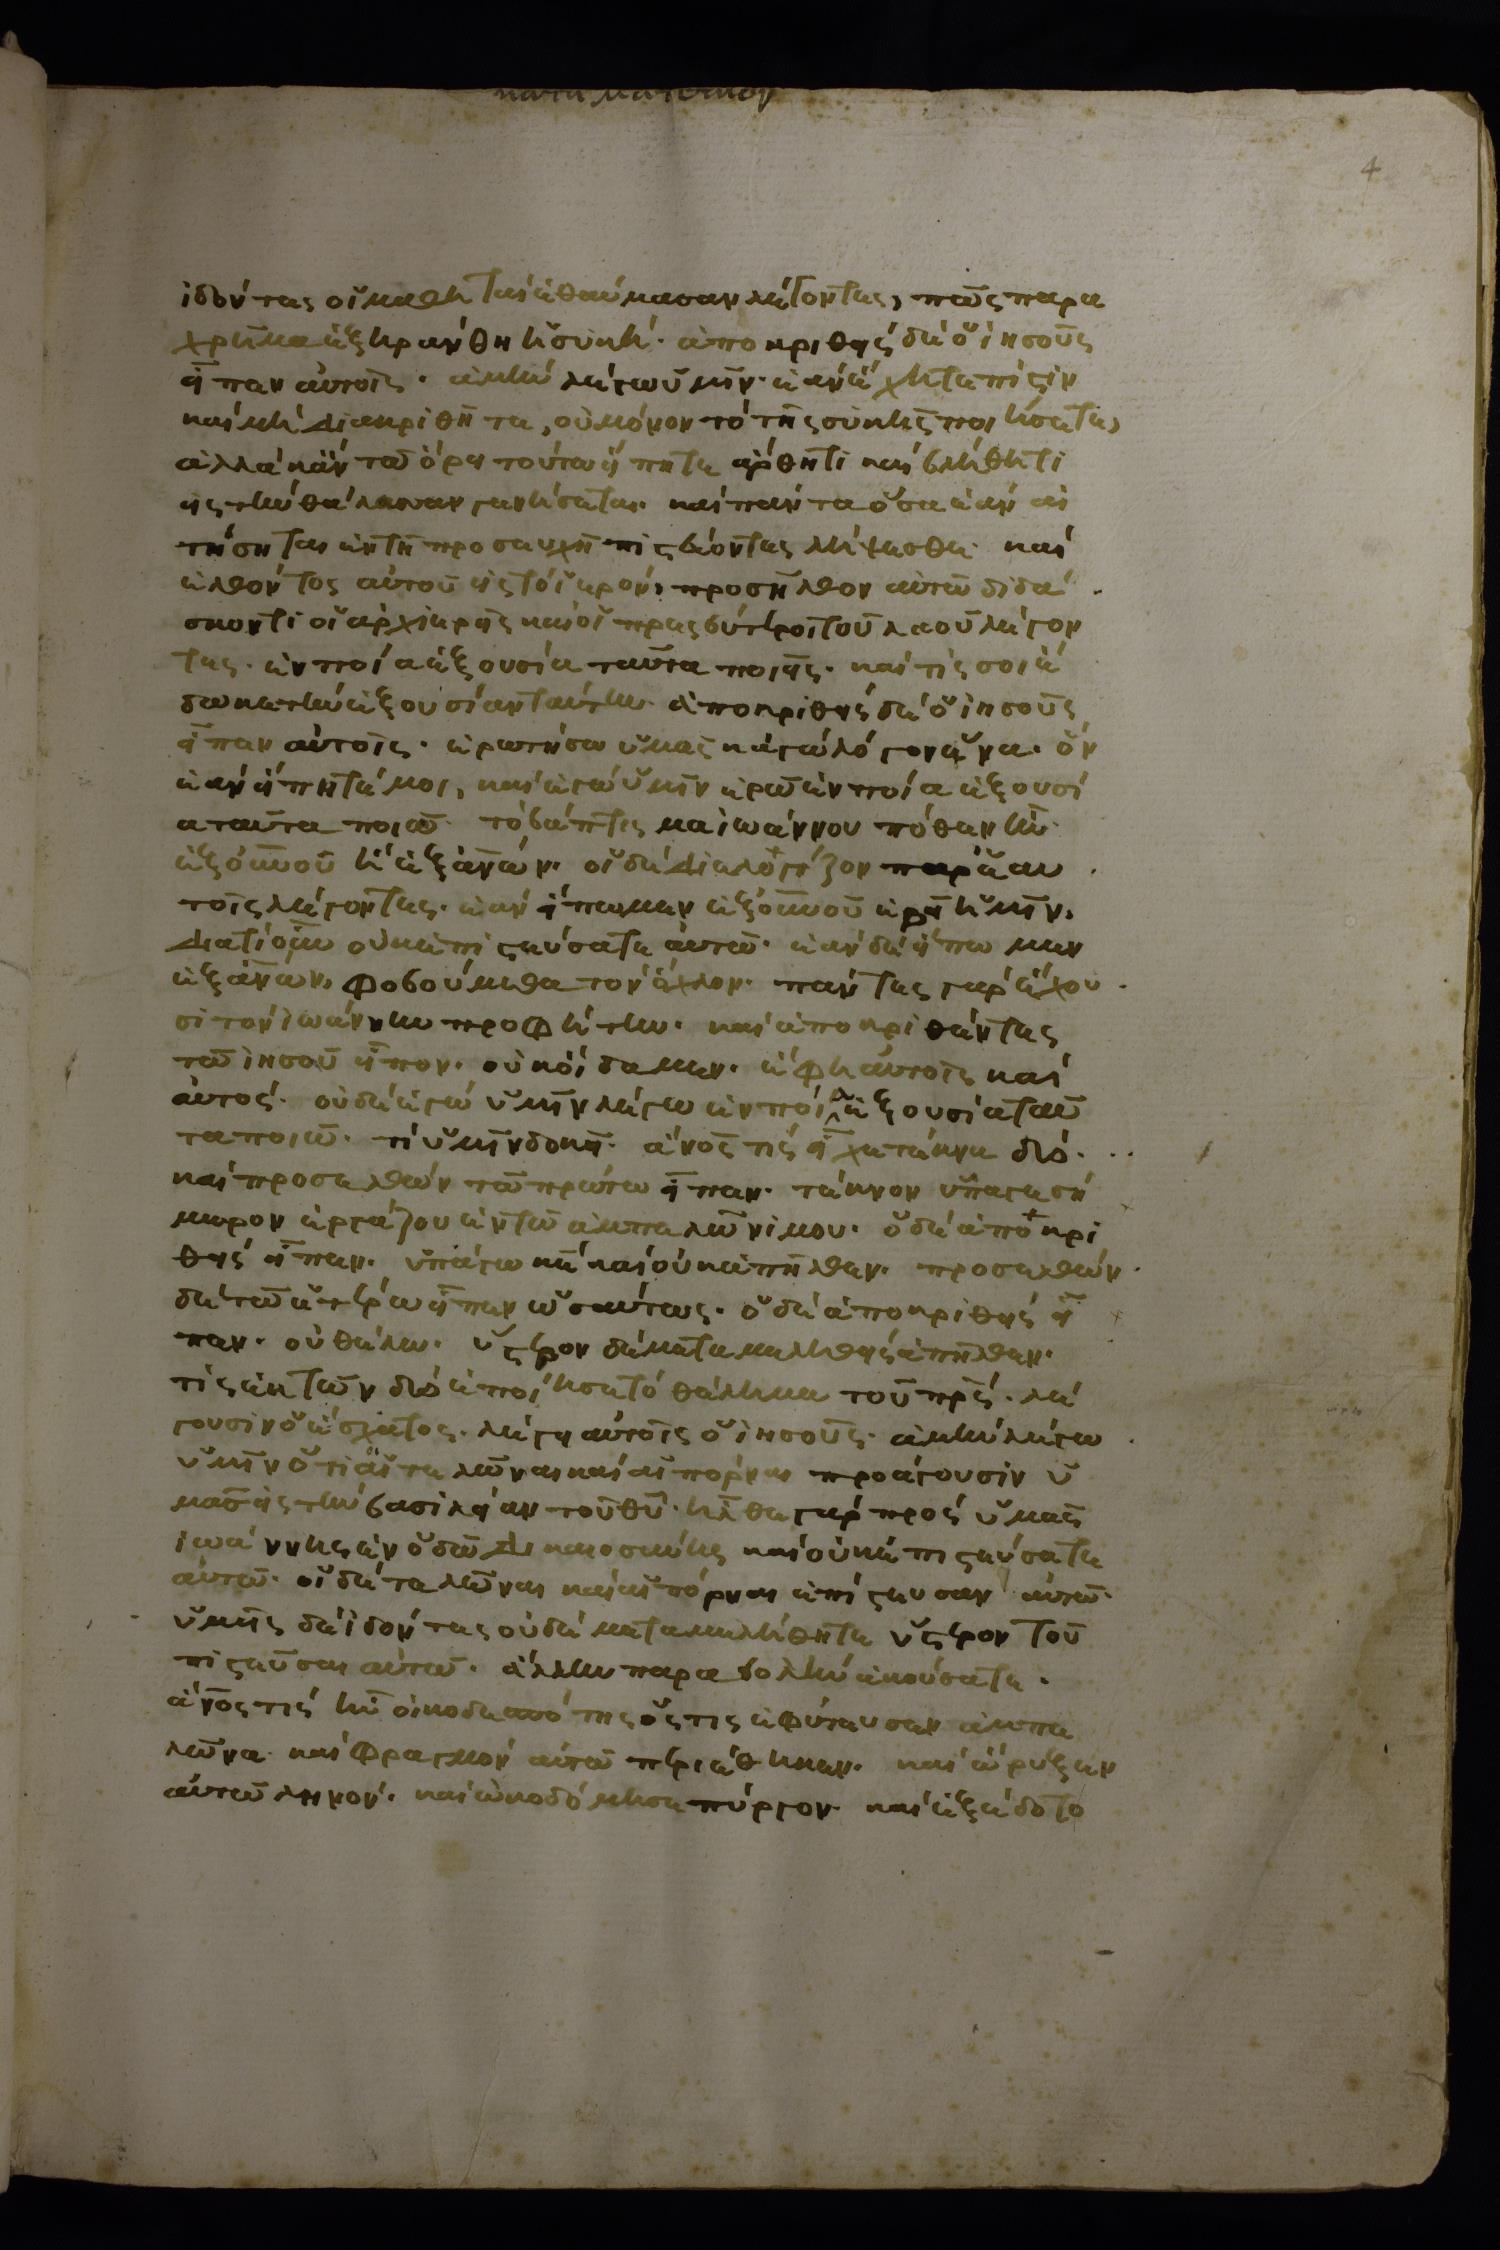 κατα ματθαιον
4
ἰδόντες οἱ μαθηταὶ ἐθαύμασαν λέγοντες, πῶς παρα
χρῆμα ἐξηράνθη ἡ συκῆ. ἀποκριθεὶς δὲ ὁ ἰησοῦς
εἶπεν αὐτοῖς. ἀμὴν λέγω ὑμῖν. ἐὰν ἔχητε πίστιν
καὶ μὴ διακριθῆτε, οὐ μόνον τὸ τῆς συκῆς ποιήσετε,
ἀλλὰ κἂν τῶ ὄρει τούτω εἴπητε ἄρθητι καὶ βλήθητι
εἰς τὴν θάλασσαν γενήσεται. καὶ πάντα ὅσα ἐὰν αἰ
τήσητε ἐν τῆ προσευχῆ πιστεύοντες λήψεσθε. καὶ
ἐλθόντος αὐτοῦ εἰς τὸ ἱερόν, προσῆλθον αὐτῶ διδά
σκοντι οἱ ἀρχιερεῖς καὶ οἱ πρεσβύτεροι τοῦ λαοῦ λέγον
τες. ἐν ποία ἐξουσία ταῦτα ποιεῖς. καὶ τίς σοι ἔ
δωκε τὴν ἐξουσίαν ταύτην. ἀποκριθεὶς δὲ ὁ ἰησοῦς
εἶπεν αὐτοῖς. ἐρωτήσω ὑμᾶς κἀγὼ λόγον ἕνα. ὃν
ἐὰν εἴπητέ μοι, καὶ ἐγὼ ὑμῖν ἐρῶ ἐν ποία ἐξουσί
α ταῦτα ποιῶ. τὸ βάπτισμα ἰωάννου πόθεν ἦν.
ἐξ οὐνοῦ ἢ ἐξ ἀνῶν. οἱ δὲ διελογίζον παρ' ἑαυ
τοῖς λέγοντες. ἐὰν εἴπωμεν ἐξ οὐνοῦ ἐρεῖ ἡμῖν.
διατί οὖν οὐκ ἐπιστεύσατε αὐτῶ. ἐὰν δὲ εἴπωμεν
ἐξ ἀνων, φοβούμεθα τὸν ὄχλον. πάντες γὰρ ἔχου
σι τὸν ἰωάννην προφήτην. καὶ ἀποκριθέντες
τῶ ἰησοῦ εἶπον. οὐκ οἴδαμεν. ἔφη αὐτοῖς καὶ
αὐτός. οὐδὲ ἐγὼ ὑμῖν λέγω ἐν ποία ἐξουσία ταῦ
τα ποιῶ. τί ὑμῖν δοκεῖ. ἄνος τίς εἶχε τέκνα δύο.
καὶ προσελθὼν τῶ πρώτω εἶπεν. τέκνον ὕπαγε σή
μερον ἐργάζου ἐν τῶ ἀμπελῶνί μου. ὁ δὲ ἀποκρι
θεὶς εἶπεν. ὑπάγω κε καὶ οὐκ ἀπῆλθεν. προσελθὼν
δὲ τῶ ἑτέρω εἶπεν ὡσαύτως. ὁ δὲ ἀποκριθεὶς εἶ
πεν. οὐ θέλω. ὕστερον δὲ μεταμεληθεὶς ἀπῆλθεν.
τίς ἐκ τῶν δύο ἐποίησε τὸ θέλημα τοῦ πρς. λέ
γουσιν ὁ ἔσχατος. λέγει αὐτοῖς ὁ ἰησοῦς. ἀμὴν λέγω
ὑμῖν ὅτι οἱ τελῶναι καὶ αἱ πόρναι προάγουσιν ὑ
μᾶς εἰς τὴν βασιλείαν τοῦ θυ. ἦλθε γὰρ πρὸς ὑμᾶς
ἰωάννης ἐν ὁδῶ δικαιοσύνης καὶ οὐκ ἐπιστεύσατε
αὐτῶ. οἱ δὲ τελῶναι καὶ αἱ πόρναι ἐπίστευσαν αὐτῶ.
ὑμεῖς δὲ ἰδόντες οὐδὲ μετεμελήθητε ὕστερον τοῦ
πιστεῦσαι αὐτῶ. ἄλλην παραβολὴν ἀκούσατε.
ἄνος τὶς ἦν οἰκοδεσπότης ὅστις ἐφύτευσεν ἀμπε
λῶνα. καὶ φραγμὸν αὐτῶ περιέθηκεν. καὶ ὤρυξεν
αὐτῶ ληνόν. καὶ ὠκοδόμησε πύργον. καὶ ἐξέδοτο